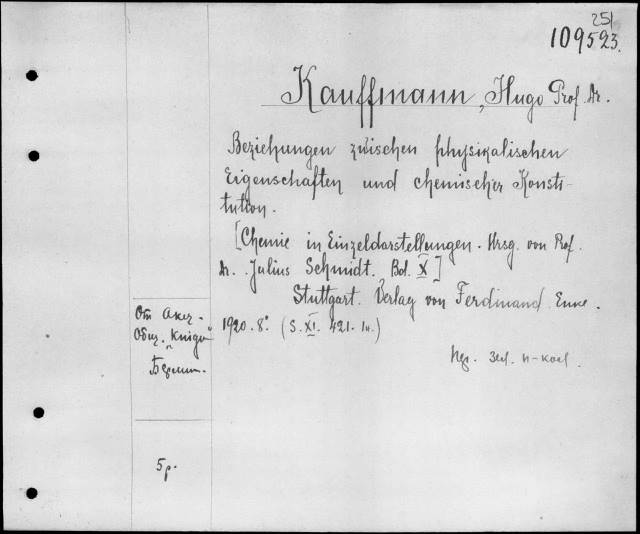 251
109523.
Kauffmann, Hugo Prof. Dr.
Beziehungen zwischen physikalischen
Eigenschaften und chemischer Konsti-
tution.
[Chemie in Einzeldarstellungen. Hrsg. von Prof.
Dr. Julius Schmidt. Bd. X]
Stuttgart. Verlag von Ferdinand Enke.
1920. 8°. (S. XI. 421. 1u.)
От Акц.
Общ. „Книга“
Берлин.
5р.